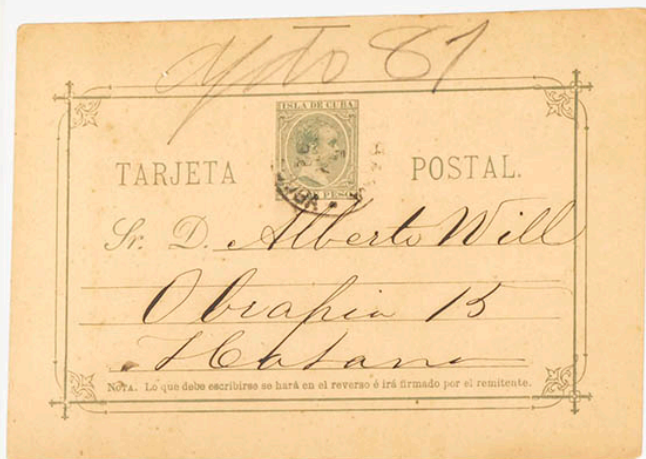 Apto 87
ISLA DE CUBA
PESO
TARJETA POSTAL.
Sr. D. Alberto Will
Obrapia 15
Habana
NOTA. Lo que debe escribirse se hará en el reverso é irá firmado por el remitente.